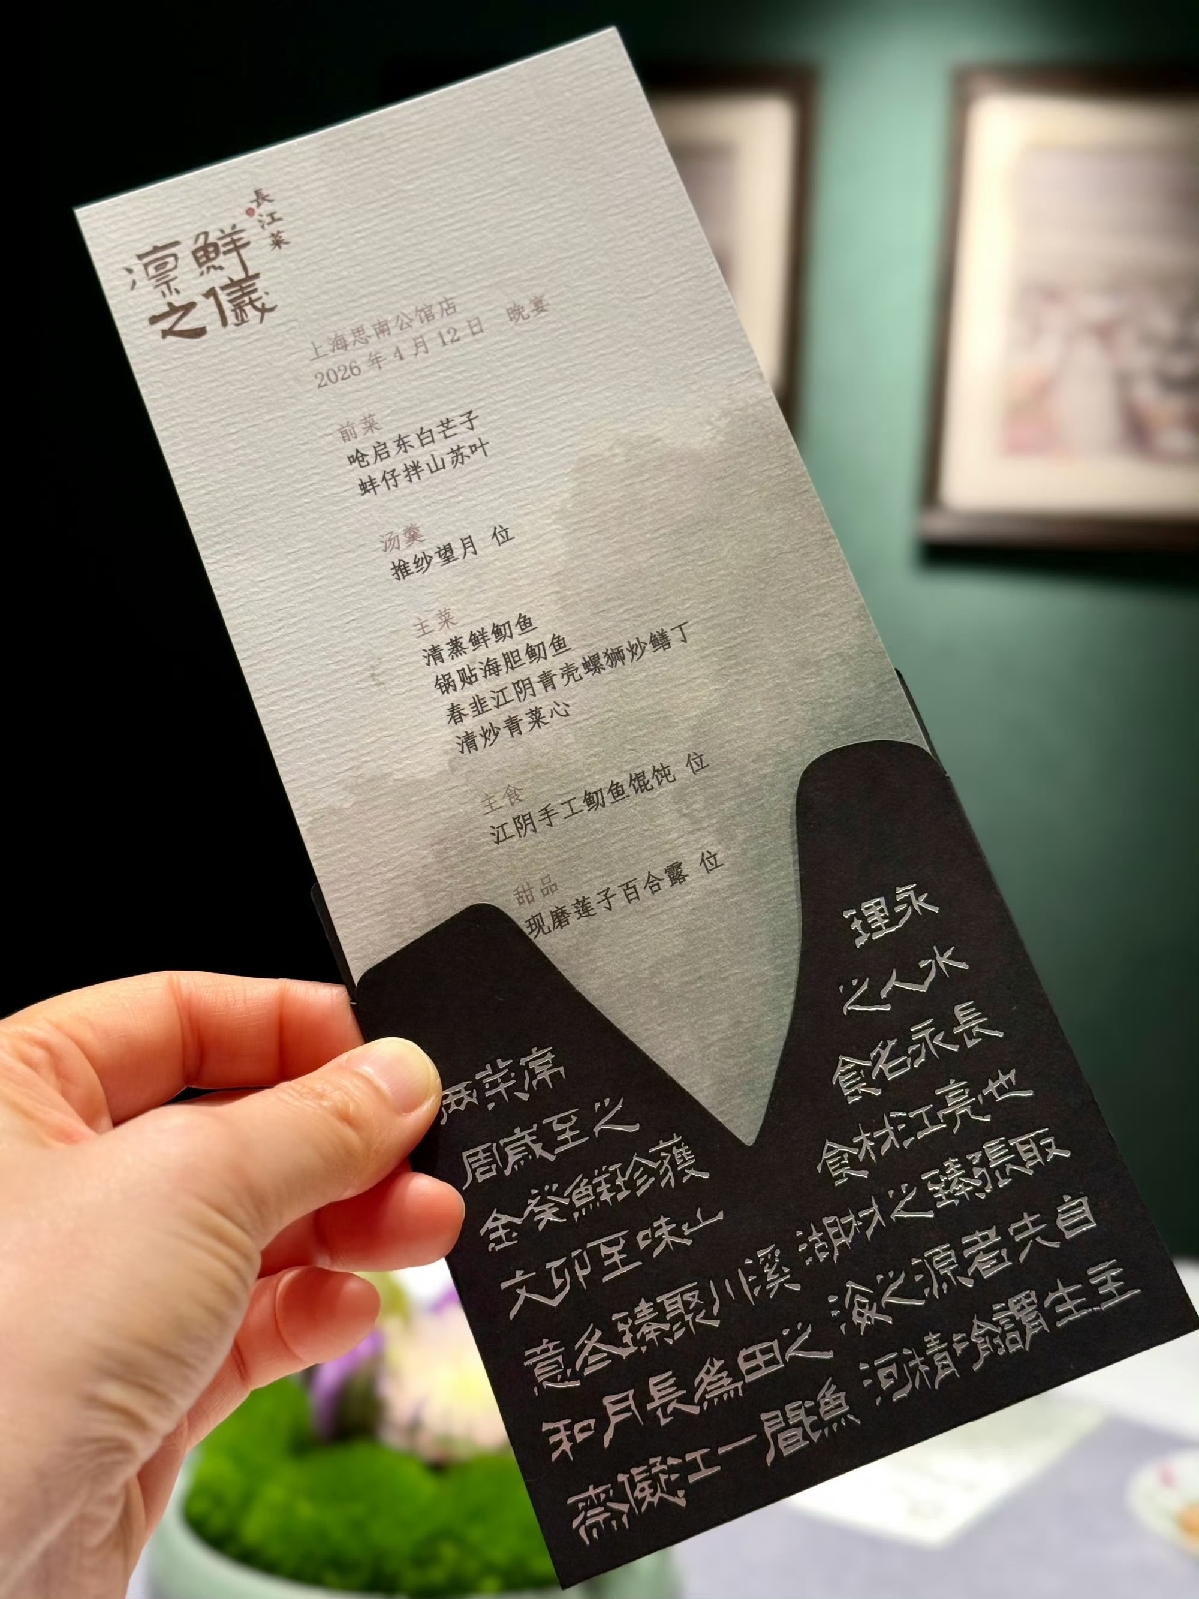 長江菜
凛鮮
之儀
上海思南公馆店
2026 年 4 月 12 日 晚宴
前菜
呛启东白芒子
蚌仔拌山苏叶
汤羹
推纱望月 位
主菜
清蒸鲜鱽鱼
锅贴海胆鱽鱼
春韭江阴青壳螺狮炒鳝丁
清炒青菜心
主食
江阴手工鱽鱼馄饨 位
甜品
现磨莲子百合露 位
理永
之人水
食名永長
食材江亮也
湖材之臻張取
海之源者夫自
河精瑜謂生王
席
周歲至之
金癸鮮珍獲
文卯至味山
意冬臻聚川溪
和月長為田之
齋儗江一間漁